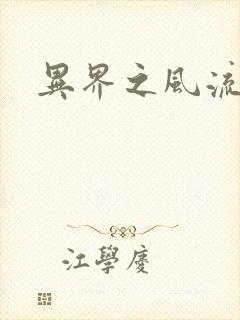 異界之風流
江學慶